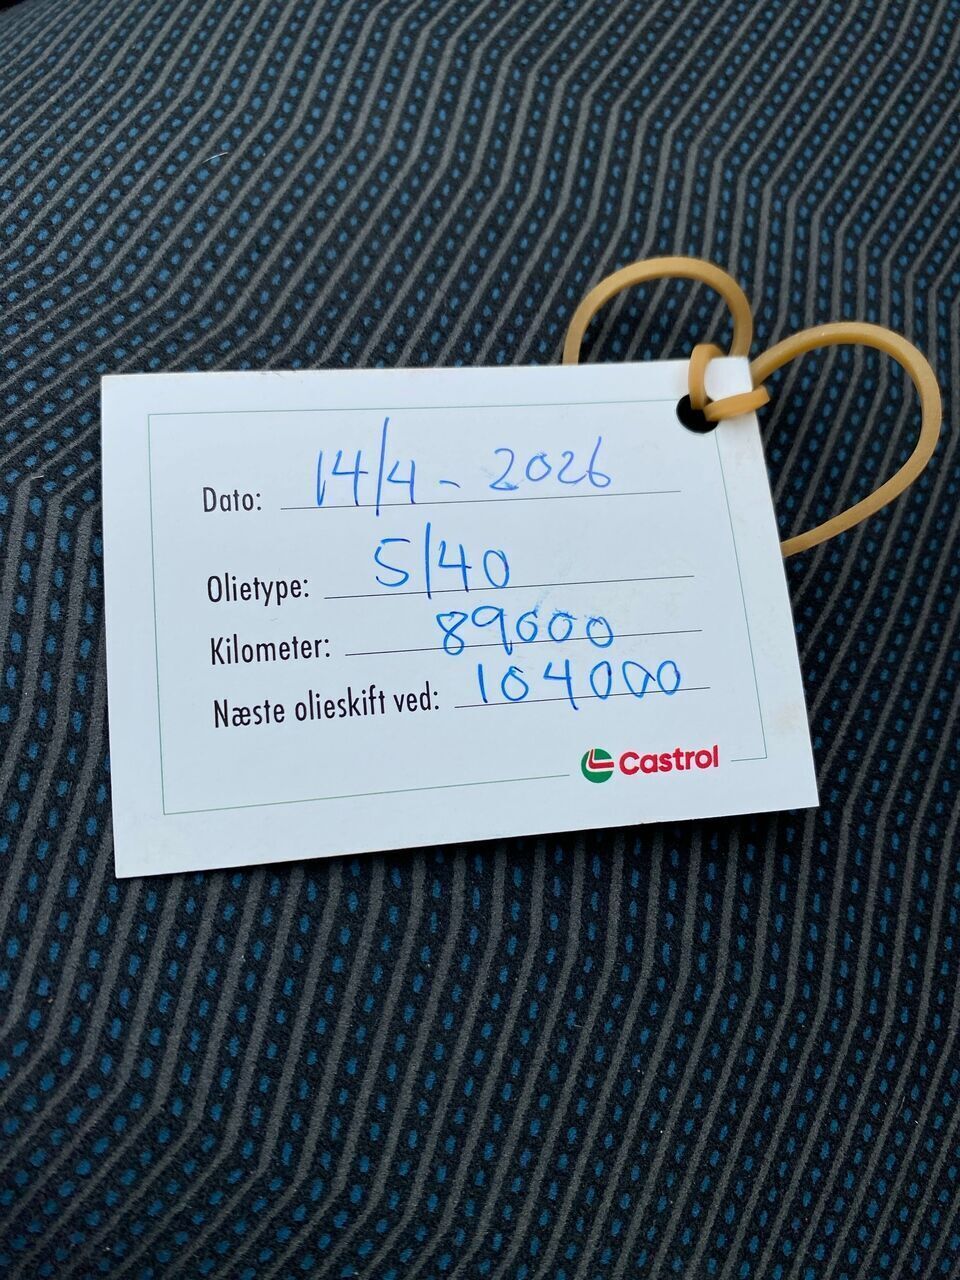 Dato: 14/4 - 2026
Olietype: 5/40
Kilometer: 89000
Næste olieskift ved: 104000
Castrol